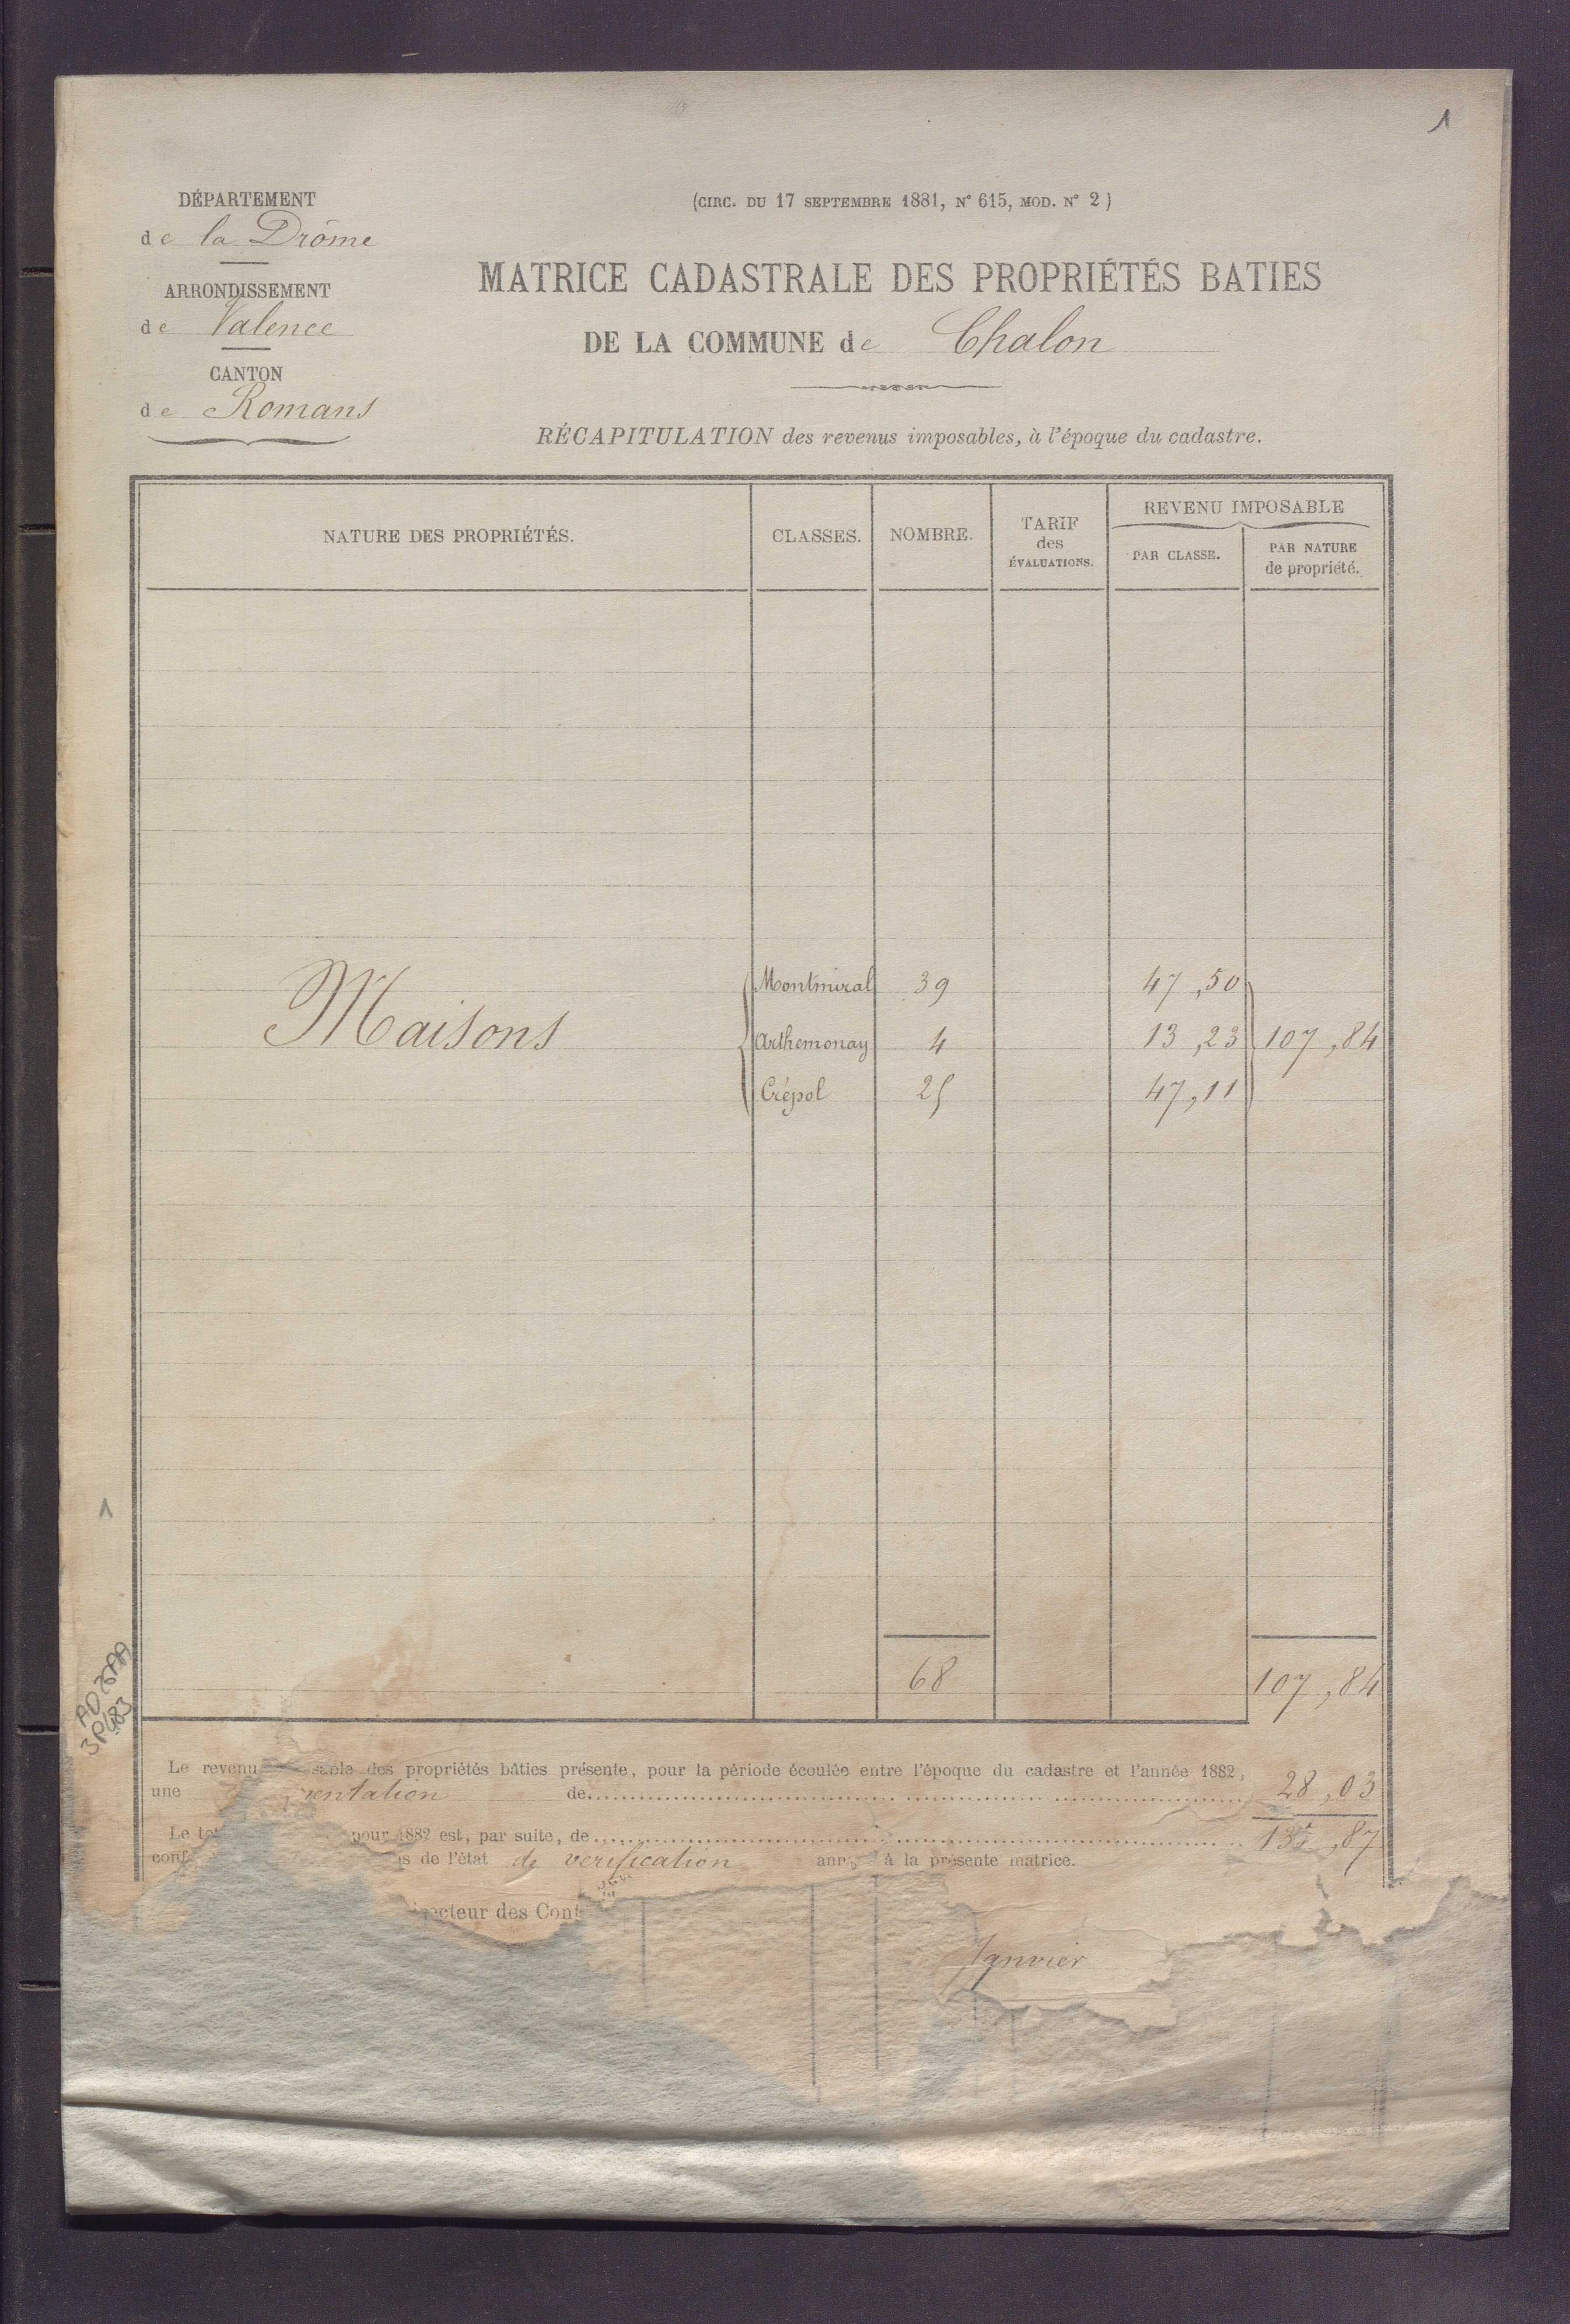 1
DÉPARTEMENT
de la Drôme
ARRONDISSEMENT
de Valence
CANTON
de Romans
(CIRC. DU 17 SEPTEMBRE 1881, N° 615, MOD. N° 2)
MATRICE CADASTRALE DES PROPRIÉTÉS BATIES
DE LA COMMUNE de Chalon
RÉCAPITULATION des revenus imposables, à l'époque du cadastre.
NATURE DES PROPRIÉTÉS. CLASSES. NOMBRE. TARIF des ÉVALUATIONS. REVENU IMPOSABLE PAR CLASSE. PAR NATURE de propriété.
Montmiral 39 47,50
Maisons Arthemonay 4 13,23 107,84
Crépol 25 47,11
1
68 107,84
AD26AA
3P483
Le revenu sable des propriétés bâties présente, pour la période écoulée entre l'époque du cadastre et l'année 1882,
une mentation de 28,03
Le pour 1882 est, par suite, de 135,87
conf s de l'état de vérification ann à la présente matrice.
irecteur des Cont
Janvier